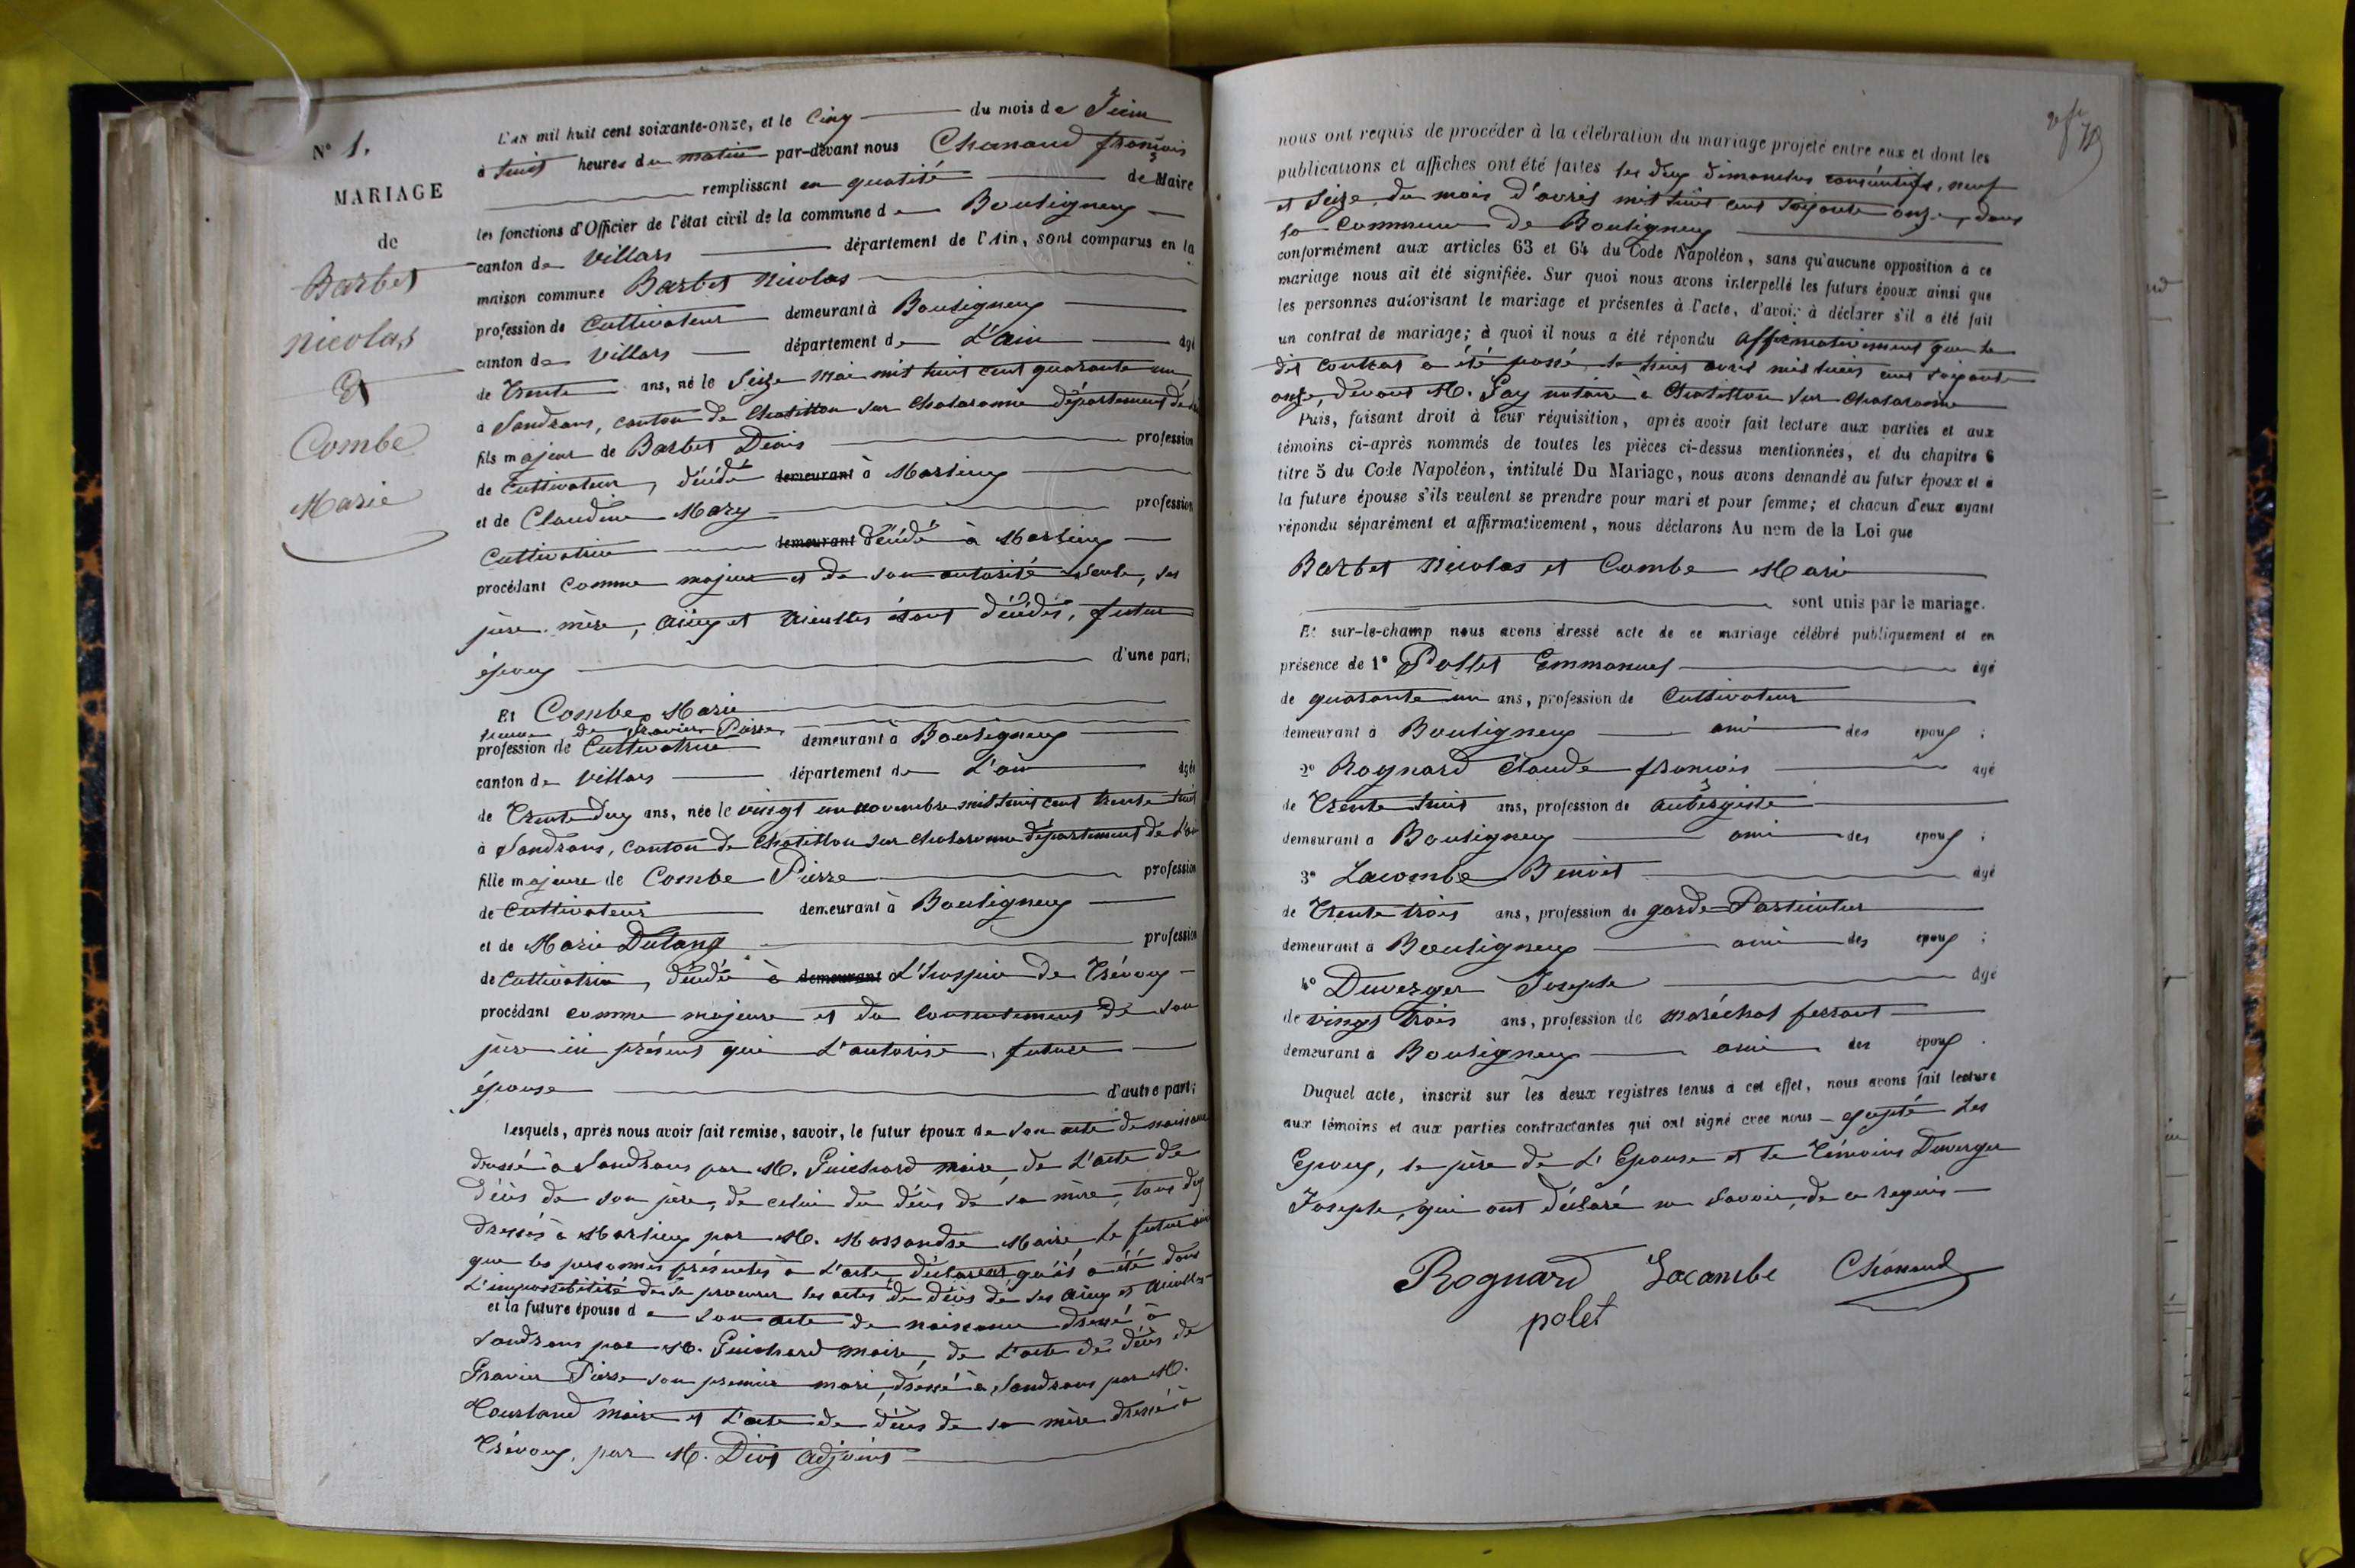 N° 1.
MARIAGE
de
Barbet
Nicolas
Et
Combe
Marie
L'an mil huit cent soixante-onze, et le Cinq du mois de Juin
à huit heures du matin par-devant nous Chanaud françois
remplissant en qualité de Maire
les fonctions d'Officier de l'état civil de la commune de Bouligneux
canton de Villars département de l'Ain, sont comparus en la
maison commune Barbet Nicolas
profession de Cultivateur demeurant à Bouligneux
canton de Villars département de L'ain âgé
de Trente ans, né le Seize Mai mil huit cent quarante un
à Sandrans, canton de Chatillon sur Chalaronne département de
fils majeur de Barbet Denis profession
de Cultivateur, décédé demeurant à Marlieux
et de Claudine Mary profession
Cultivatrice demeurant décédée à Marlieux
procédant comme majeur et de son autorité seule, ses
père, mère, aïeux et aieulles étant décédés, futur
époux d'une part;
Et Combe Marie
veuve de Gravier Pierre
profession de Cultivatrice demeurant à Bouligneux
canton de Villars département de L'ain âgée
de Trente deux ans, née le vingt un novembre mil huit cent trente huit
à Sandrans, canton de Chatillon sur Chalaronne département de L'ain
fille majeure de Combe Pierre profession
de Cultivateur demeurant à Bouligneux
et de Marie Dutang profession
de Cultivatrice, décédée à demeurant L'hospice de Trévoux
procédant comme majeure et du consentement de son
père ici présent qui L'autorise, future
épouse d'autre part;
Lesquels, après nous avoir fait remise, savoir, le futur époux de son acte de naissance
dressé à Sandrans par M. Guichard maire, de L'acte de
décès de son père, de celui du décès de sa mère, tous deux
dressés à Marlieux par M. Massandre Maire, Le futur
que les personnes présentes à L'acte, déclarent qu'il a été dans
L'impossibilité de se procurer les actes de décès de ses aïeux et aieulles
et la future épouse de son acte de naissance dressé à
Sandrans par M. Guichard maire, de L'acte de décès de
Gravier Pierre son premier mari, dressé à Sandrans par M.
maire et L'acte de décès de sa mère dressé à
Trévoux, par M. Diot adjoint
nous ont requis de procéder à la célébration du mariage projeté entre eux et dont les
publications et affiches ont été faites les deux dimanches consécutifs, neuf
et Seize, du mois d'avril mil huit cent soixante onze, dans
la Commune de Bouligneux
conformément aux articles 63 et 64 du Code Napoléon, sans qu'aucune opposition à ce
mariage nous ait été signifiée. Sur quoi nous avons interpellé les futurs époux ainsi que
les personnes autorisant le mariage et présentes à l'acte, d'avoir à déclarer s'il a été fait
un contrat de mariage; à quoi il nous a été répondu affirmativement que le
dit contrat a été passé, le huit avril mil huit cent soixante
onze, devant M. Gay notaire à Chatillon sur Chalaronne
Puis, faisant droit à leur réquisition, après avoir fait lecture aux parties et aux
témoins ci-après nommés de toutes les pièces ci-dessus mentionnées, et du chapitre 6
titre 5 du Code Napoléon, intitulé Du Mariage, nous avons demandé au futur époux et à
la future épouse s'ils veulent se prendre pour mari et pour femme; et chacun d'eux ayant
répondu séparément et affirmativement, nous déclarons Au nom de la Loi que
Barbet Nicolas et Combe Marie
sont unis par le mariage.
Et sur-le-champ nous avons dressé acte de ce mariage célébré publiquement et en
présence de 1° Pollet Emmanuel âgé
de quarante un ans, profession de Cultivateur
demeurant à Bouligneux ami des époux ;
2° Rognard Claude françois âgé
de Trente huit ans, profession de aubergiste
demeurant à Bouligneux ami des époux ;
3° Lacombe Benoit âgé
de Trente trois ans, profession de garde-Particulier
demeurant à Bouligneux ami des époux ;
4° Duverger Joseph âgé
de vingt trois ans, profession de maréchal ferrant
demeurant à Bouligneux ami des époux .
Duquel acte, inscrit sur les deux registres tenus à cet effet, nous avons fait lecture
aux témoins et aux parties contractantes qui ont signé avec nous excepté Les
Epoux, le père de L'Epouse et le Témoins Duverger
Joseph, qui ont déclaré ne savoir, de ce requis
Rognard Lacombe Chanaud
polet